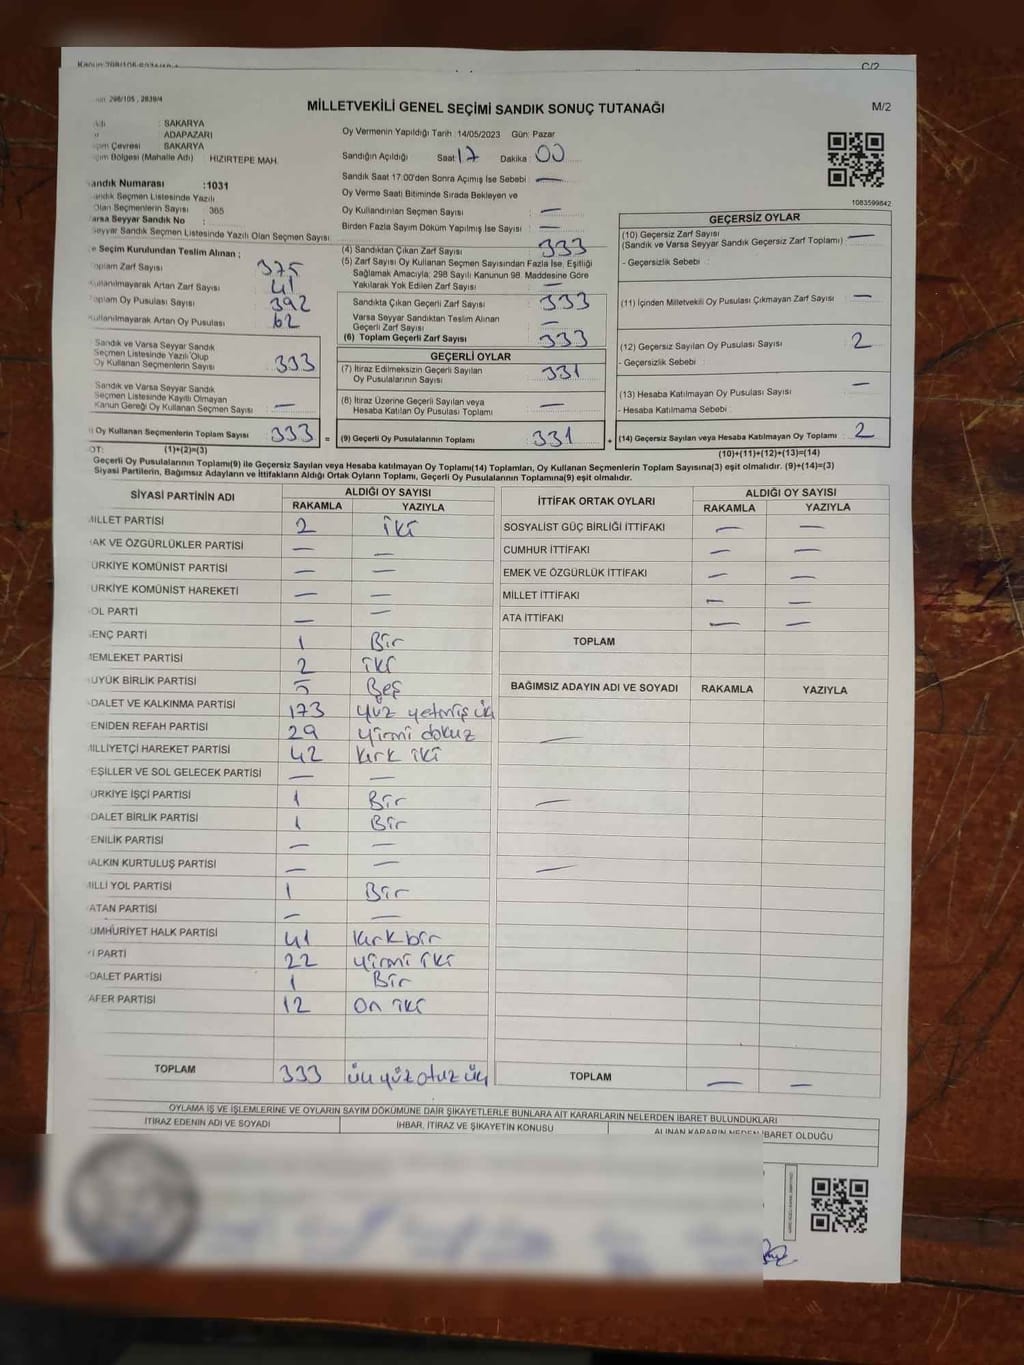 C/2
298/105, 2839/4
MİLLETVEKİLİ GENEL SEÇİMİ SANDIK SONUÇ TUTANAĞI
M/2
: SAKARYA
ADAPAZARI
Çevresi : SAKARYA
Bölgesi (Mahalle Adı) HIZIRTEPE MAH.
Oy Vermenin Yapıldığı Tarih : 14/05/2023 Gün: Pazar
Sandığın Açıldığı Saat 17 Dakika : 00
Sandık Saat 17:00'den Sonra Açımış İse Sebebi : —
Oy Verme Saati Bitiminde Sırada Bekleyen ve
Oy Kullandırılan Seçmen Sayısı : —
Birden Fazla Sayım Döküm Yapılmış İse Sayısı : —
1083599842
Sandık Numarası : 1031
Sandık Seçmen Listesinde Yazılı
Olan Seçmenlerin Sayısı : 365
Varsa Seyyar Sandık No :
Seyyar Sandık Seçmen Listesinde Yazılı Olan Seçmen Sayısı :
Seçim Kurulundan Teslim Alınan ;
Toplam Zarf Sayısı : 375
Kullanılmayarak Artan Zarf Sayısı : 41
Toplam Oy Pusulası Sayısı : 392
Kullanılmayarak Artan Oy Pusulası : 62
Sandık ve Varsa Seyyar Sandık
Seçmen Listesinde Yazılı Olup
Oy Kullanan Seçmenlerin Sayısı : 333
Sandık ve Varsa Seyyar Sandık
Seçmen Listesinde Kayıtlı Olmayan
Kanun Gereği Oy Kullanan Seçmen Sayısı : —
Oy Kullanan Seçmenlerin Toplam Sayısı : 333 =
(1)+(2)=(3)
(4) Sandıktan Çıkan Zarf Sayısı : 333
(5) Zarf Sayısı Oy Kullanan Seçmen Sayısından Fazla İse, Eşitliği
Sağlamak Amacıyla; 298 Sayılı Kanunun 98. Maddesine Göre
Yakılarak Yok Edilen Zarf Sayısı : —
Sandıkta Çıkan Geçerli Zarf Sayısı : 333
Varsa Seyyar Sandıktan Teslim Alınan
Geçerli Zarf Sayısı : —
(6) Toplam Geçerli Zarf Sayısı : 333
GEÇERLİ OYLAR
(7) İtiraz Edilmeksizin Geçerli Sayılan
Oy Pusulalarının Sayısı : 331
(8) İtiraz Üzerine Geçerli Sayılan veya
Hesaba Katılan Oy Pusulası Toplamı : —
(9) Geçerli Oy Pusulalarının Toplamı : 331 +
GEÇERSİZ OYLAR
(10) Geçersiz Zarf Sayısı
(Sandık ve Varsa Seyyar Sandık Geçersiz Zarf Toplamı) : —
- Geçersizlik Sebebi :
(11) İçinden Milletvekili Oy Pusulası Çıkmayan Zarf Sayısı : —
(12) Geçersiz Sayılan Oy Pusulası Sayısı : 2
- Geçersizlik Sebebi :
(13) Hesaba Katılmayan Oy Pusulası Sayısı : —
- Hesaba Katılmama Sebebi :
(14) Geçersiz Sayılan veya Hesaba Katılmayan Oy Toplamı : 2
(10)+(11)+(12)+(13)=(14)
Geçerli Oy Pusulalarının Toplamı(9) ile Geçersiz Sayılan veya Hesaba katılmayan Oy Toplamı(14) Toplamları, Oy Kullanan Seçmenlerin Toplam Sayısına(3) eşit olmalıdır. (9)+(14)=(3)
Siyasi Partilerin, Bağımsız Adayların ve İttifakların Aldığı Ortak Oyların Toplamı, Geçerli Oy Pusulalarının Toplamına(9) eşit olmalıdır.
SİYASİ PARTİNİN ADI ALDIĞI OY SAYISI
RAKAMLA YAZIYLA
MİLLET PARTİSİ 2 iki
HAK VE ÖZGÜRLÜKLER PARTİSİ — —
TÜRKİYE KOMÜNİST PARTİSİ — —
TÜRKİYE KOMÜNİST HAREKETİ — —
SOL PARTİ — —
GENÇ PARTİ 1 Bir
MEMLEKET PARTİSİ 2 iki
BÜYÜK BİRLİK PARTİSİ 5 Beş
ADALET VE KALKINMA PARTİSİ 173 yüz yetmiş üç
YENİDEN REFAH PARTİSİ 29 yirmi dokuz
MİLLİYETÇİ HAREKET PARTİSİ 42 kırk iki
YEŞİLLER VE SOL GELECEK PARTİSİ — —
TÜRKİYE İŞÇİ PARTİSİ 1 Bir
ADALET BİRLİK PARTİSİ 1 Bir
YENİLİK PARTİSİ — —
HALKIN KURTULUŞ PARTİSİ — —
MİLLİ YOL PARTİSİ 1 Bir
VATAN PARTİSİ — —
CUMHURİYET HALK PARTİSİ 41 kırk bir
İYİ PARTİ 22 yirmi iki
ADALET PARTİSİ 1 Bir
ZAFER PARTİSİ 12 on iki
TOPLAM 333 üç yüz otuz üç
İTTİFAK ORTAK OYLARI ALDIĞI OY SAYISI
RAKAMLA YAZIYLA
SOSYALİST GÜÇ BİRLİĞİ İTTİFAKI — —
CUMHUR İTTİFAKI — —
EMEK VE ÖZGÜRLÜK İTTİFAKI — —
MİLLET İTTİFAKI — —
ATA İTTİFAKI — —
TOPLAM
BAĞIMSIZ ADAYIN ADI VE SOYADI RAKAMLA YAZIYLA
—
—
—
TOPLAM — —
OYLAMA İŞ VE İŞLEMLERİNE VE OYLARIN SAYIM DÖKÜMÜNE DAİR ŞİKAYETLERLE BUNLARA AİT KARARLARIN NELERDEN İBARET BULUNDUKLARI
İTİRAZ EDENİN ADI VE SOYADI İHBAR, İTİRAZ VE ŞİKAYETİN KONUSU ALINAN KARARIN NEDEN İBARET OLDUĞU